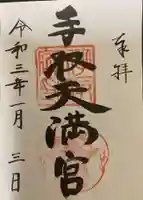 奉拝
手取天満宮
令和三年一月三日